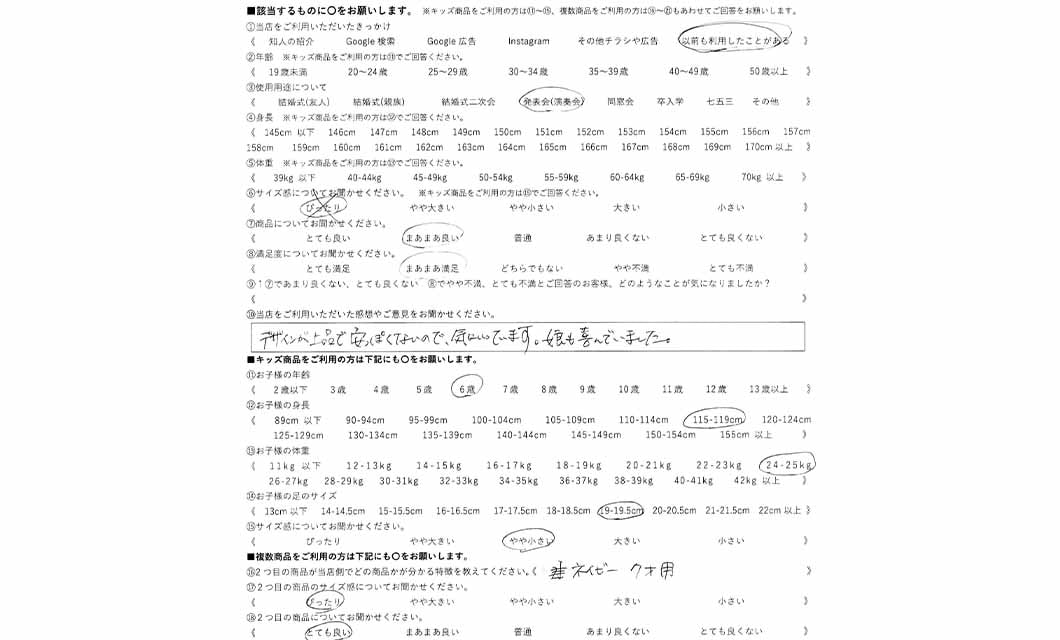 ■該当するものに〇をお願いします。 ※キッズ商品をご利用の方は⑪〜⑮、複数商品をご利用の方は⑯〜㉑もあわせてご回答をお願いします。
①当店をご利用いただいたきっかけ
《 知人の紹介 Google 検索 Google 広告 Instagram その他チラシや広告 以前も利用したことがある 》
②年齢 ※キッズ商品をご利用の方は⑪でご回答ください。
《 19歳未満 20〜24歳 25〜29歳 30〜34歳 35〜39歳 40〜49歳 50歳以上 》
③使用用途について
《 結婚式(友人) 結婚式(親族) 結婚式二次会 発表会(演奏会) 同窓会 卒入学 七五三 その他 》
④身長 ※キッズ商品をご利用の方は⑫でご回答ください。
《 145cm 以下 146cm 147cm 148cm 149cm 150cm 151cm 152cm 153cm 154cm 155cm 156cm 157cm
158cm 159cm 160cm 161cm 162cm 163cm 164cm 165cm 166cm 167cm 168cm 169cm 170cm 以上 》
⑤体重 ※キッズ商品をご利用の方は⑬でご回答ください。
《 39kg 以下 40-44kg 45-49kg 50-54kg 55-59kg 60-64kg 65-69kg 70kg 以上 》
⑥サイズ感についてお聞かせください。 ※キッズ商品をご利用の方は⑮でご回答ください。
《 ぴったり やや大きい やや小さい 大きい 小さい 》
⑦商品についてお聞かせください。
《 とても良い まあまあ良い 普通 あまり良くない とても良くない 》
⑧満足度についてお聞かせください。
《 とても満足 まあまあ満足 どちらでもない やや不満 とても不満 》
⑨1⑦であまり良くない、とても良くない ⑧でやや不満、とても不満とご回答のお客様、どのようなことが気になりましたか？
《 》
⑩当店をご利用いただいた感想やご意見をお聞かせください。
デザインが上品で安っぽくないので、気にいっています。娘も喜んでいました。
■キッズ商品をご利用の方は下記にも〇をお願いします。
⑪お子様の年齢
《 2歳以下 3歳 4歳 5歳 6歳 7歳 8歳 9歳 10歳 11歳 12歳 13歳以上 》
⑫お子様の身長
《 89cm 以下 90-94cm 95-99cm 100-104cm 105-109cm 110-114cm 115-119cm 120-124cm
125-129cm 130-134cm 135-139cm 140-144cm 145-149cm 150-154cm 155cm 以上 》
⑬お子様の体重
《 11kg 以下 12-13kg 14-15kg 16-17kg 18-19kg 20-21kg 22-23kg 24-25kg
26-27kg 28-29kg 30-31kg 32-33kg 34-35kg 36-37kg 38-39kg 40-41kg 42kg 以上 》
⑭お子様の足のサイズ
《 13cm 以下 14-14.5cm 15-15.5cm 16-16.5cm 17-17.5cm 18-18.5cm 19-19.5cm 20-20.5cm 21-21.5cm 22cm 以上 》
⑮サイズ感についてお聞かせください。
《 ぴったり やや大きい やや小さい 大きい 小さい 》
■複数商品をご利用の方は下記にも〇をお願いします。
⑯2つ目の商品が当店側でどの商品かが分かる特徴を教えてください。《 ネイビー クオ用 》
⑰2つ目の商品のサイズ感についてお聞かせください。
《 ぴったり やや大きい やや小さい 大きい 小さい 》
⑱2つ目の商品についてお聞かせください。
《 とても良い まあまあ良い 普通 あまり良くない とても良くない 》